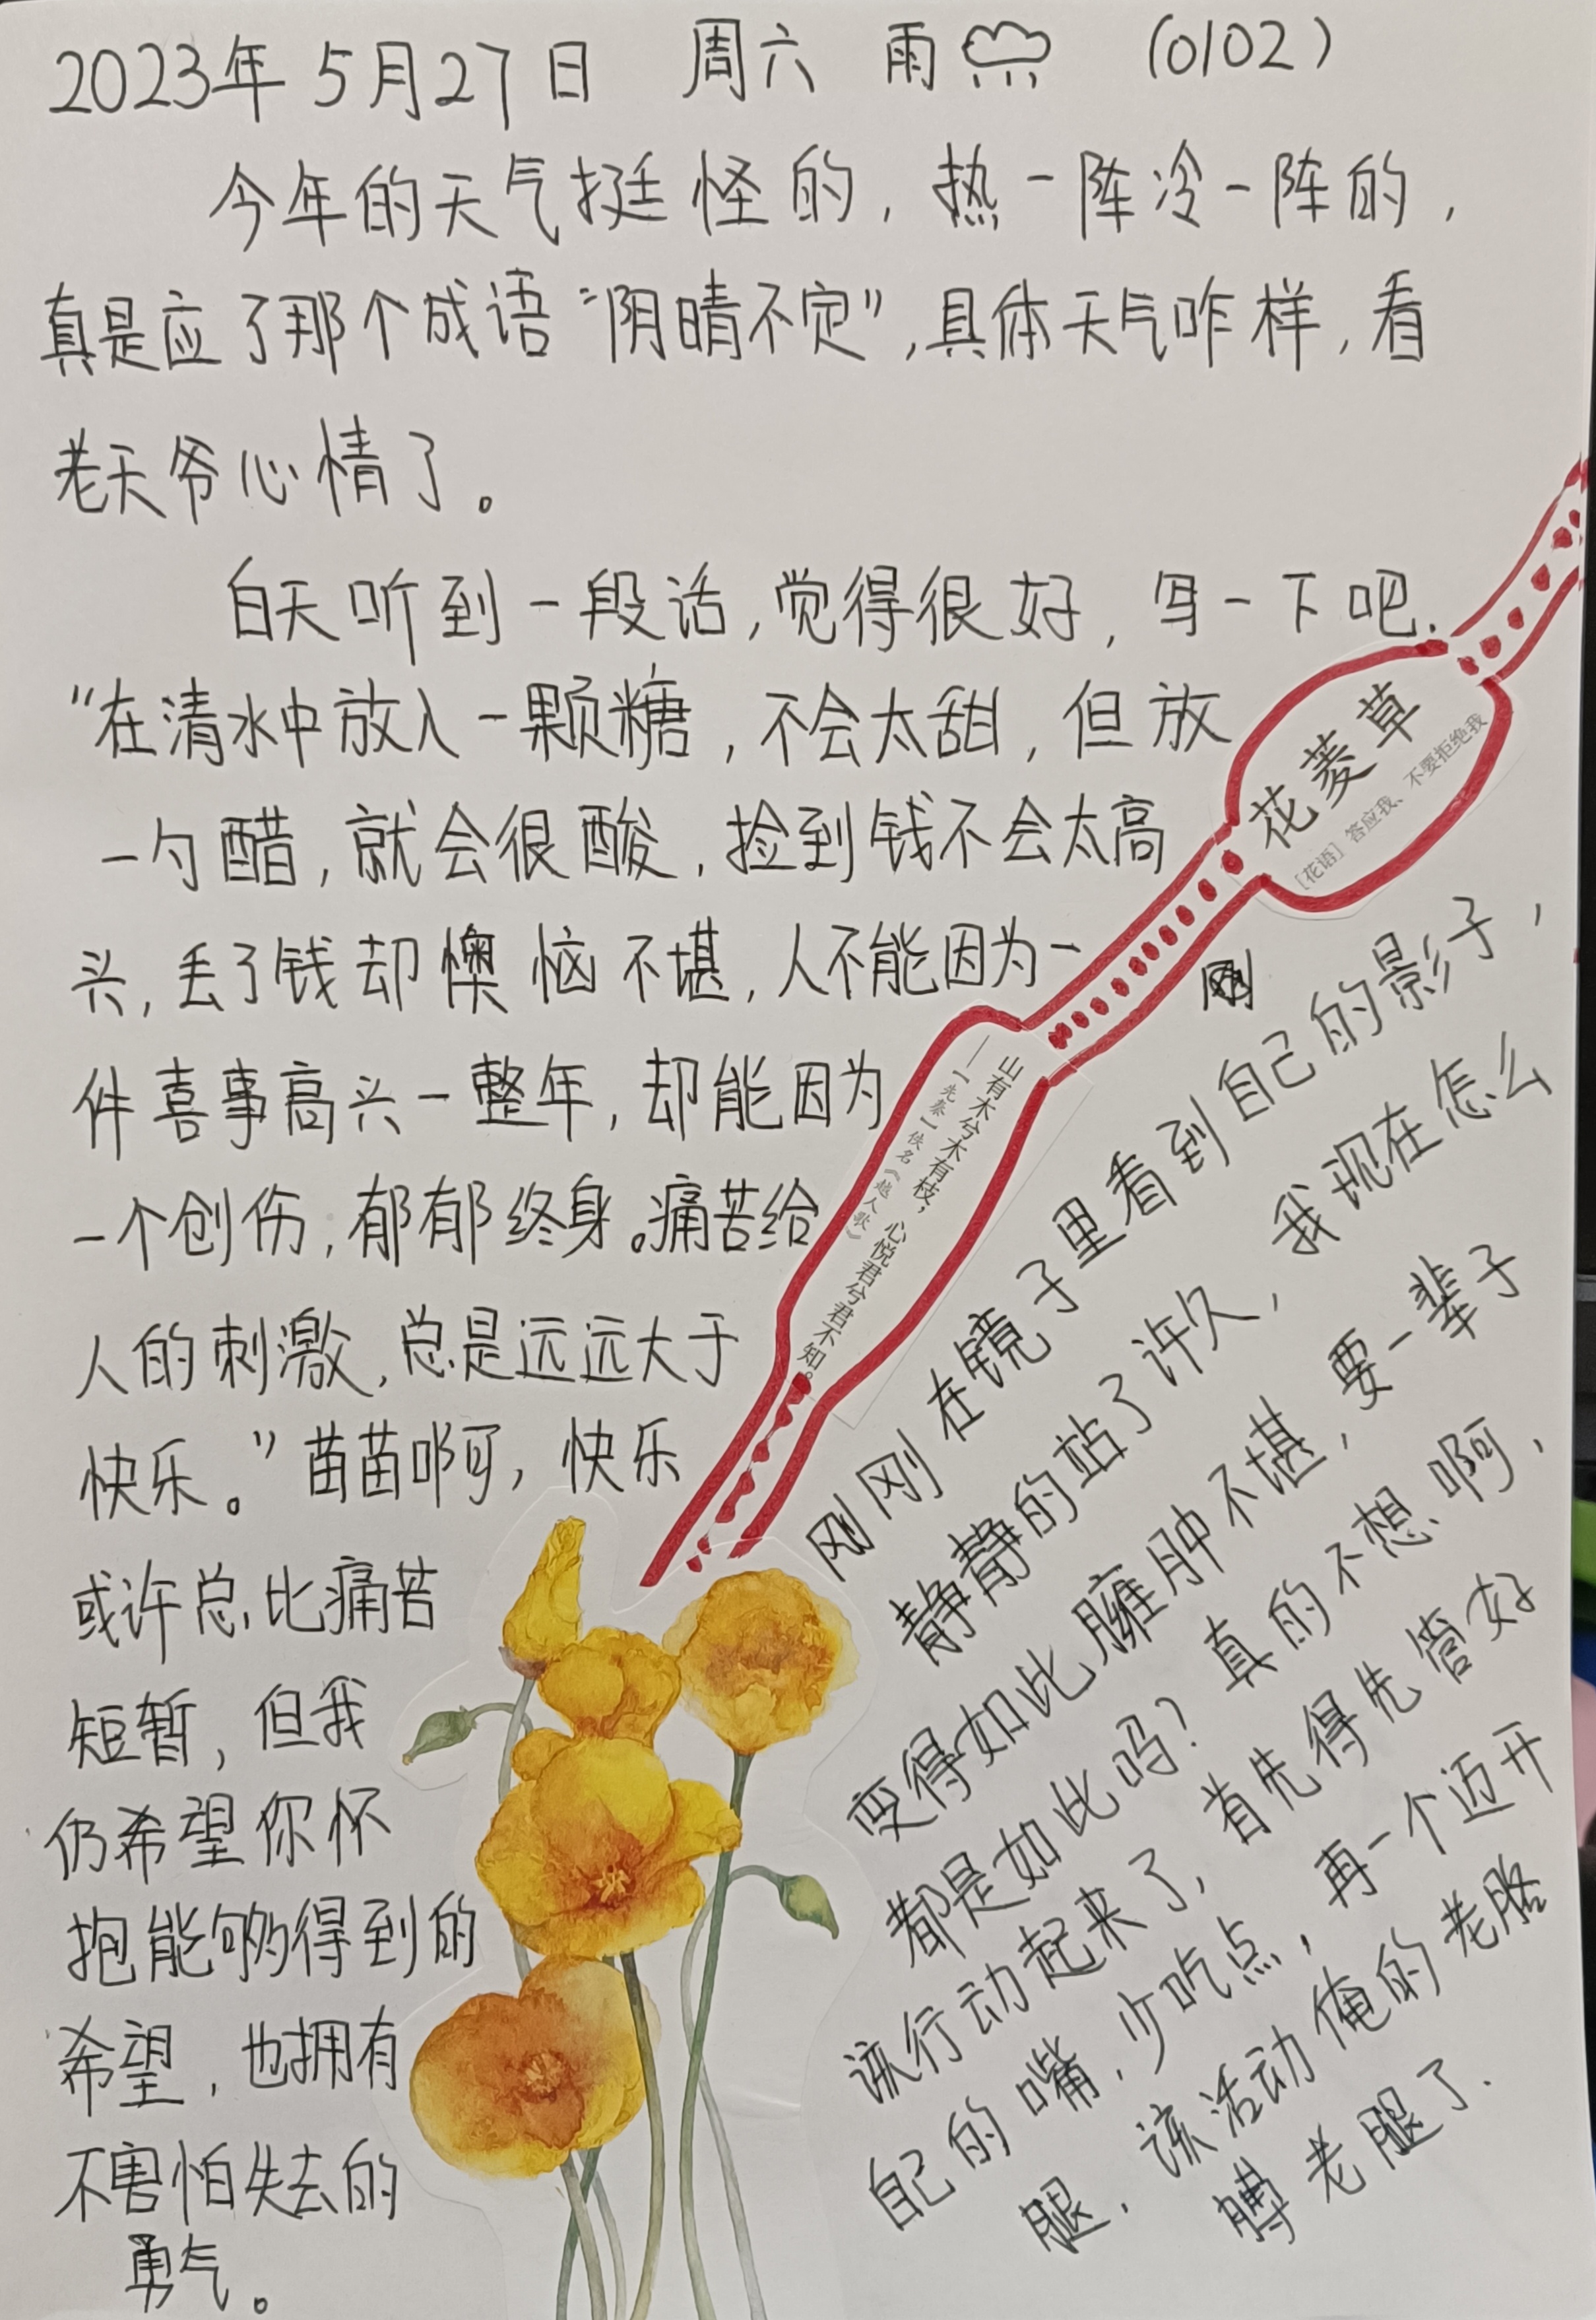 2023年5月27日 周六 雨 (0102)
今年的天气挺怪的,热一阵冷一阵的,
真是应了那个成语“阴晴不定”,具体天气咋样,看
老天爷心情了。
白天听到一段话,觉得很好,写一下吧.
“在清水中放入一颗糖,不会太甜,但放
一勺醋,就会很酸,捡到钱不会太高
兴,丢了钱却懊恼不堪,人不能因为一
件喜事高兴一整年,却能因为
一个创伤,郁郁终身。痛苦给
人的刺激,总是远远大于
快乐。”苗苗啊,快乐
或许总比痛苦
短暂,但我
仍希望你怀
抱能够得到的
希望,也拥有
不害怕失去的
勇气。
花菱草
[花语] 答应我、不要拒绝我
山有木兮木有枝,心悦君兮君不知。
——[先秦] 佚名《越人歌》
刚
刚刚在镜子里看到自己的影子,
静静的站了许久,我现在怎么
变得如此臃肿不堪,要一辈子
都是如此吗?真的不想啊,
该行动起来了,首先得先管好
自己的嘴,少吃点,再一个迈开
腿,该活动俺的老胳
膊老腿了.